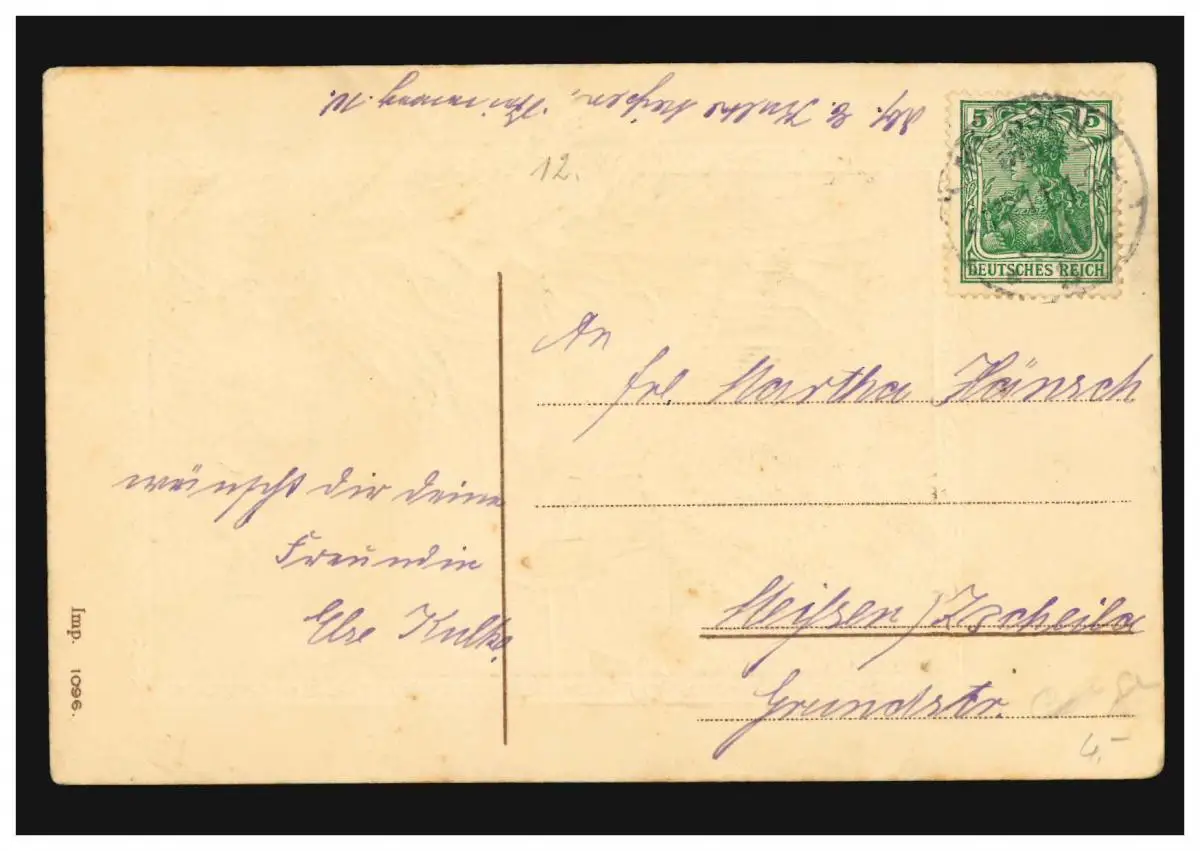 Abs. E. Kulke Meißen,
12.
5 5
DEUTSCHES REICH
MEISSEN
An
Frl Martha Hänsch
wünscht dir deine
Freundin
Else Kulke.
Meißen/Zscheila
Grundstr.
Imp. 1096.
4.-